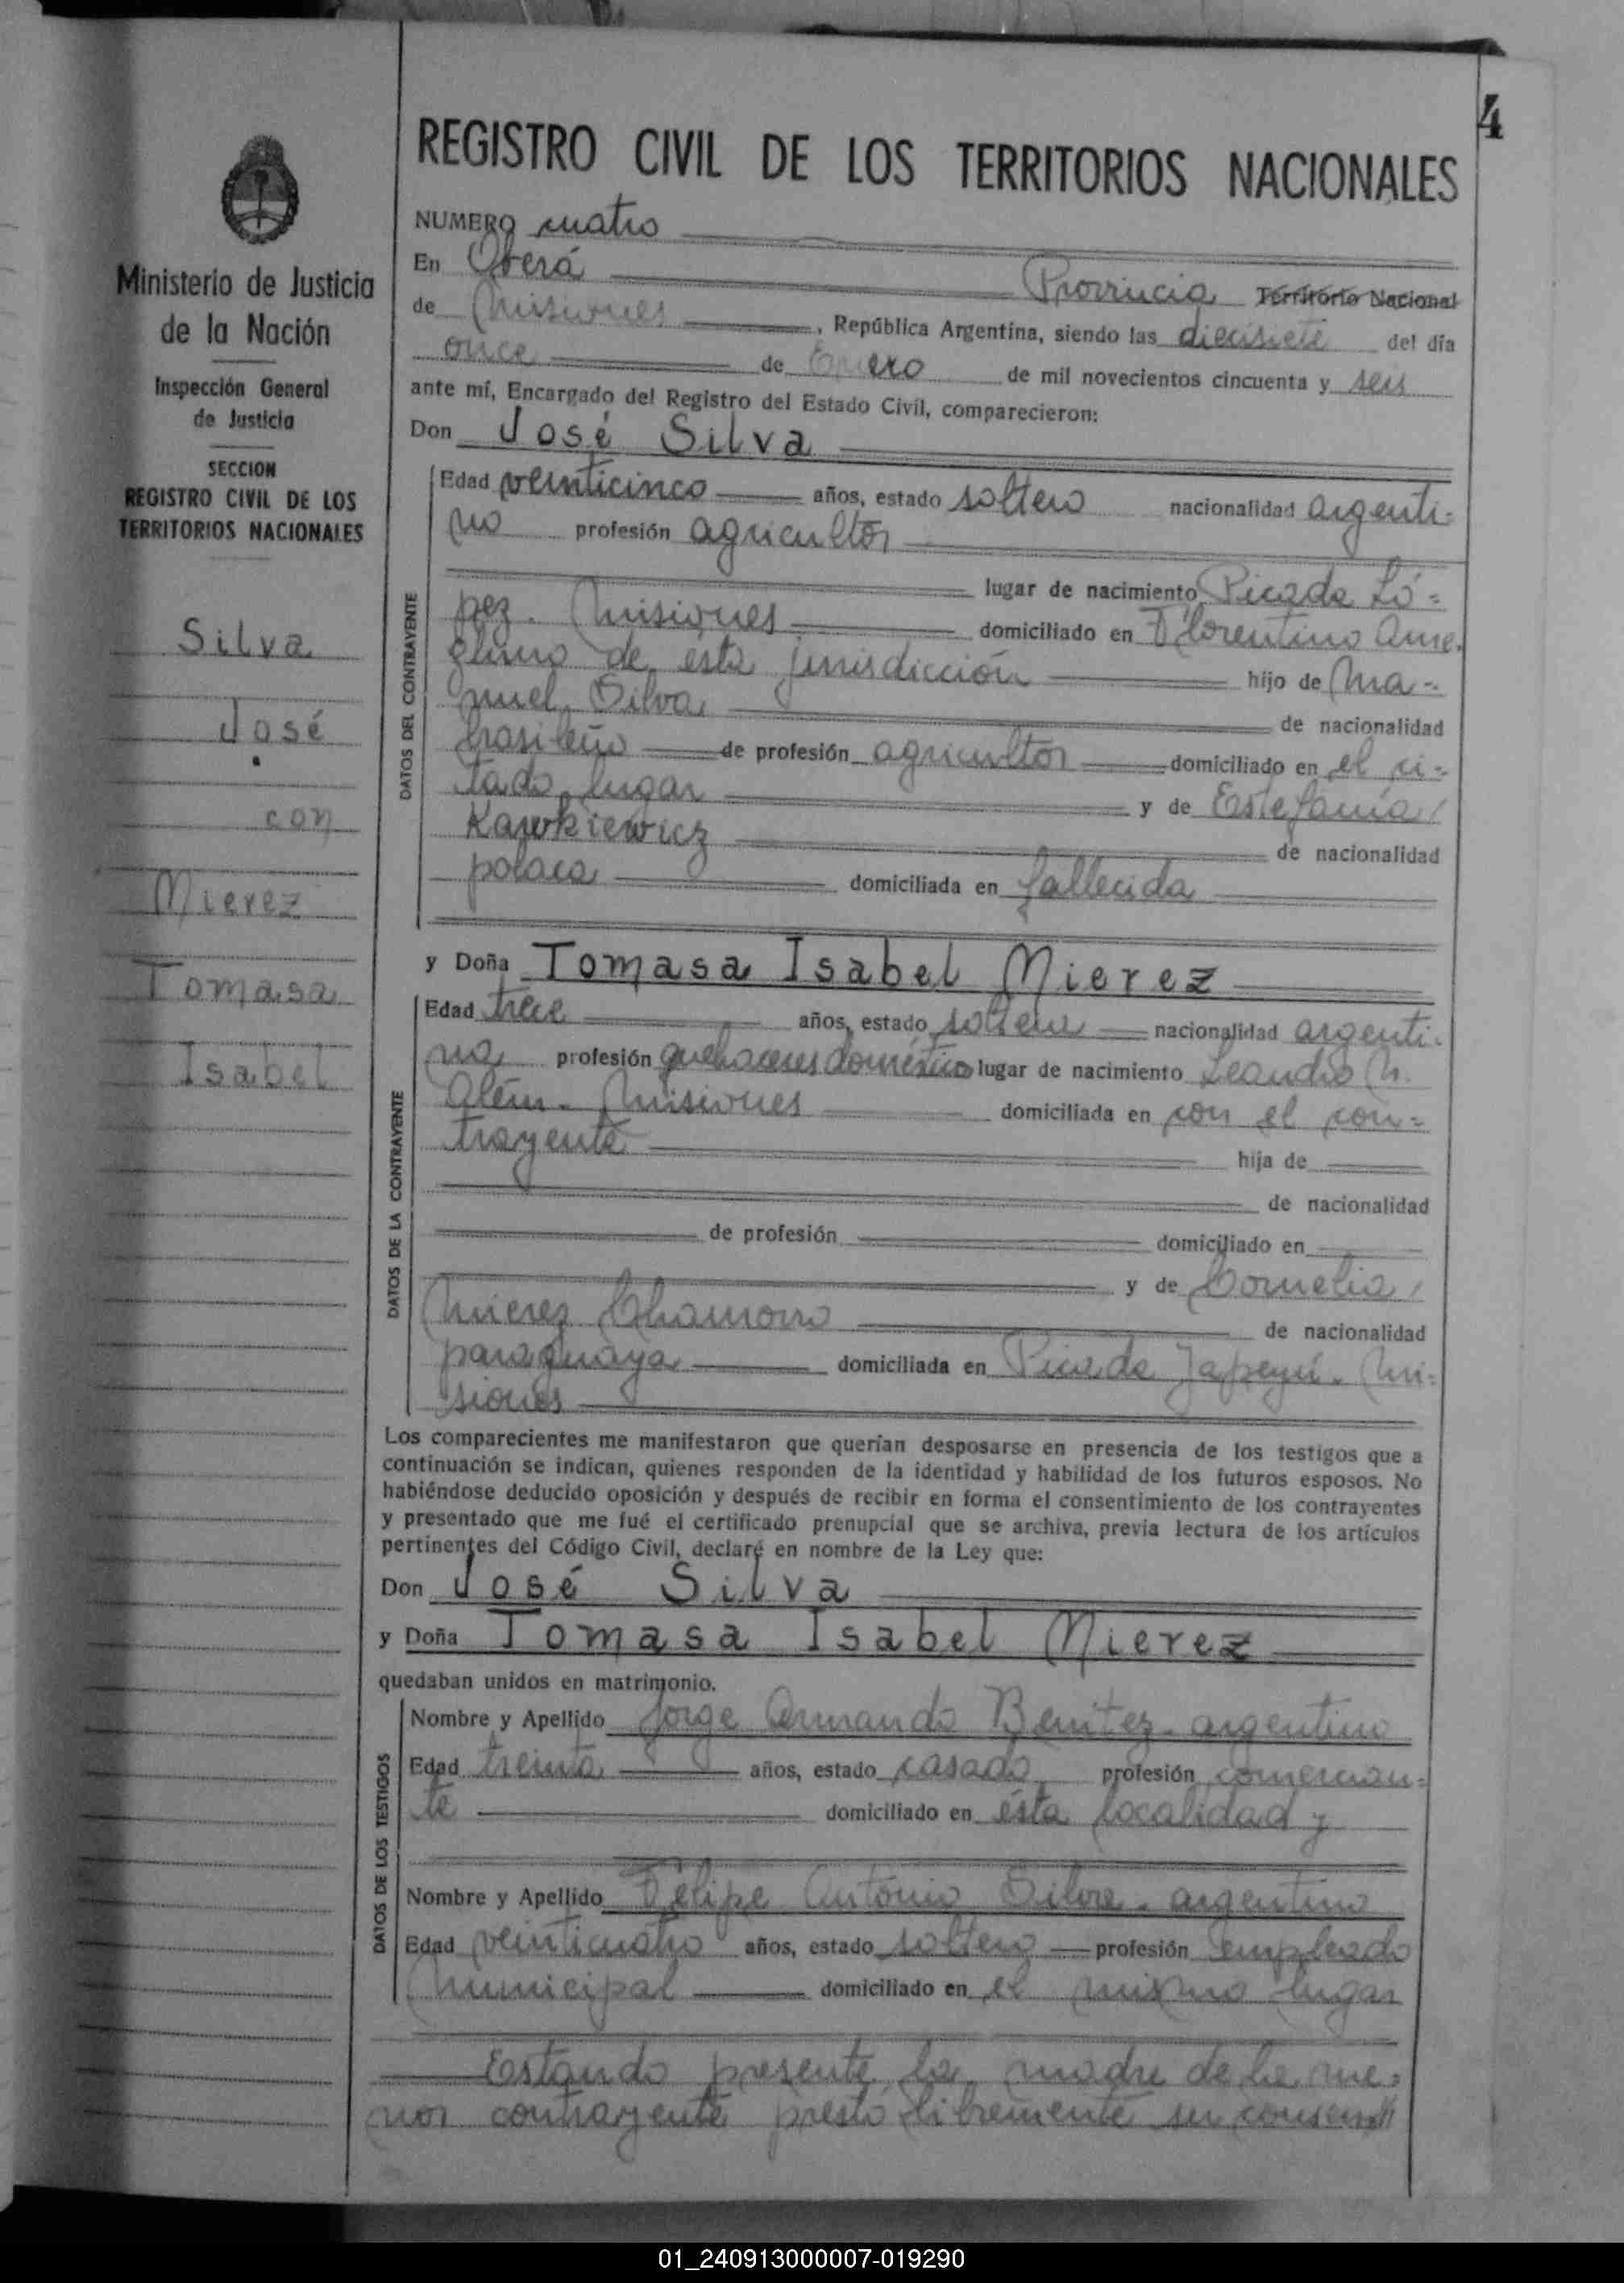 4
REGISTRO CIVIL DE LOS TERRITORIOS NACIONALES
Ministerio de Justicia
de la Nación
Inspección General
de Justicia
SECCION
REGISTRO CIVIL DE LOS
TERRITORIOS NACIONALES
Silva
José
con
Mierez
Tomasa
Isabel
NUMERO cuatro
En Oberá Provincia Territorio Nacional
de Misiones, República Argentina, siendo las diecisiete del día
once de Enero de mil novecientos cincuenta y seis
ante mí, Encargado del Registro del Estado Civil, comparecieron:
Don José Silva
DATOS DEL CONTRAYENTE
Edad veinticinco años, estado soltero nacionalidad argenti-
no profesión agricultor
lugar de nacimiento Picada Ló=
pez. Misiones domiciliado en Florentino Ame.
ghino de ésta jurisdicción hijo de Ma-
nuel Silva de nacionalidad
brasileño de profesión agricultor domiciliado en el ci-
tado lugar y de Estefanía
Kawkiewicz de nacionalidad
polaca domiciliada en fallecida
y Doña Tomasa Isabel Mierez
DATOS DE LA CONTRAYENTE
Edad trece años, estado soltera nacionalidad argenti-
na profesión quehaceres domésticos lugar de nacimiento Leandro N.
Além. Misiones domiciliada en con el con=
trayente hija de
de nacionalidad
de profesión domiciliado en
y de Cornelia
Mierez Chamorro de nacionalidad
paraguaya domiciliada en Picada Japeyú. Mi=
siones
Los comparecientes me manifestaron que querían desposarse en presencia de los testigos que a
continuación se indican, quienes responden de la identidad y habilidad de los futuros esposos. No
habiéndose deducido oposición y después de recibir en forma el consentimiento de los contrayentes
y presentado que me fué el certificado prenupcial que se archiva, previa lectura de los artículos
pertinentes del Código Civil, declaré en nombre de la Ley que:
Don José Silva
y Doña Tomasa Isabel Mierez
quedaban unidos en matrimonio.
DATOS DE LOS TESTIGOS
Nombre y Apellido Jorge Armando Benitez. argentino
Edad treinta años, estado casado profesión comercian=
te domiciliado en ésta localidad y
Nombre y Apellido Felipe Antonio Silva. argentino
Edad veinticuatro años, estado soltero profesión empleado
Municipal domiciliado en el mismo lugar
Estando presente la madre de la me=
nor contrayente prestó libremente su consenti
01_240913000007-019290